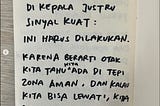 DI KEPALA JUSTRU
SINYAL KUAT:
INI HARUS DILAKUKAN.
KARENA BERARTI OTAK
KITA TAHU KITA ADA DI TEPI
ZONA AMAN, DAN KALAU
KITA BISA LEWATI, KITA